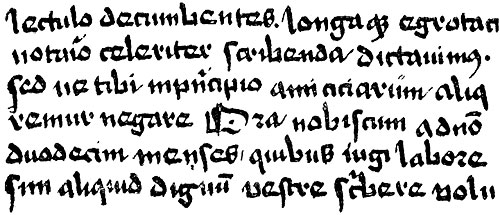 lectulo decumbentes. longaqꝫ egrotaci
notario celeriter scribenda dictauimꝰ.
sed ne tibi inpͥncipio amiciciarum aliq
remur negare Ora nobiscum adnō
duodecim menses, quibus iugi labore
sim aliquid dignū vestre scͥbere uolu